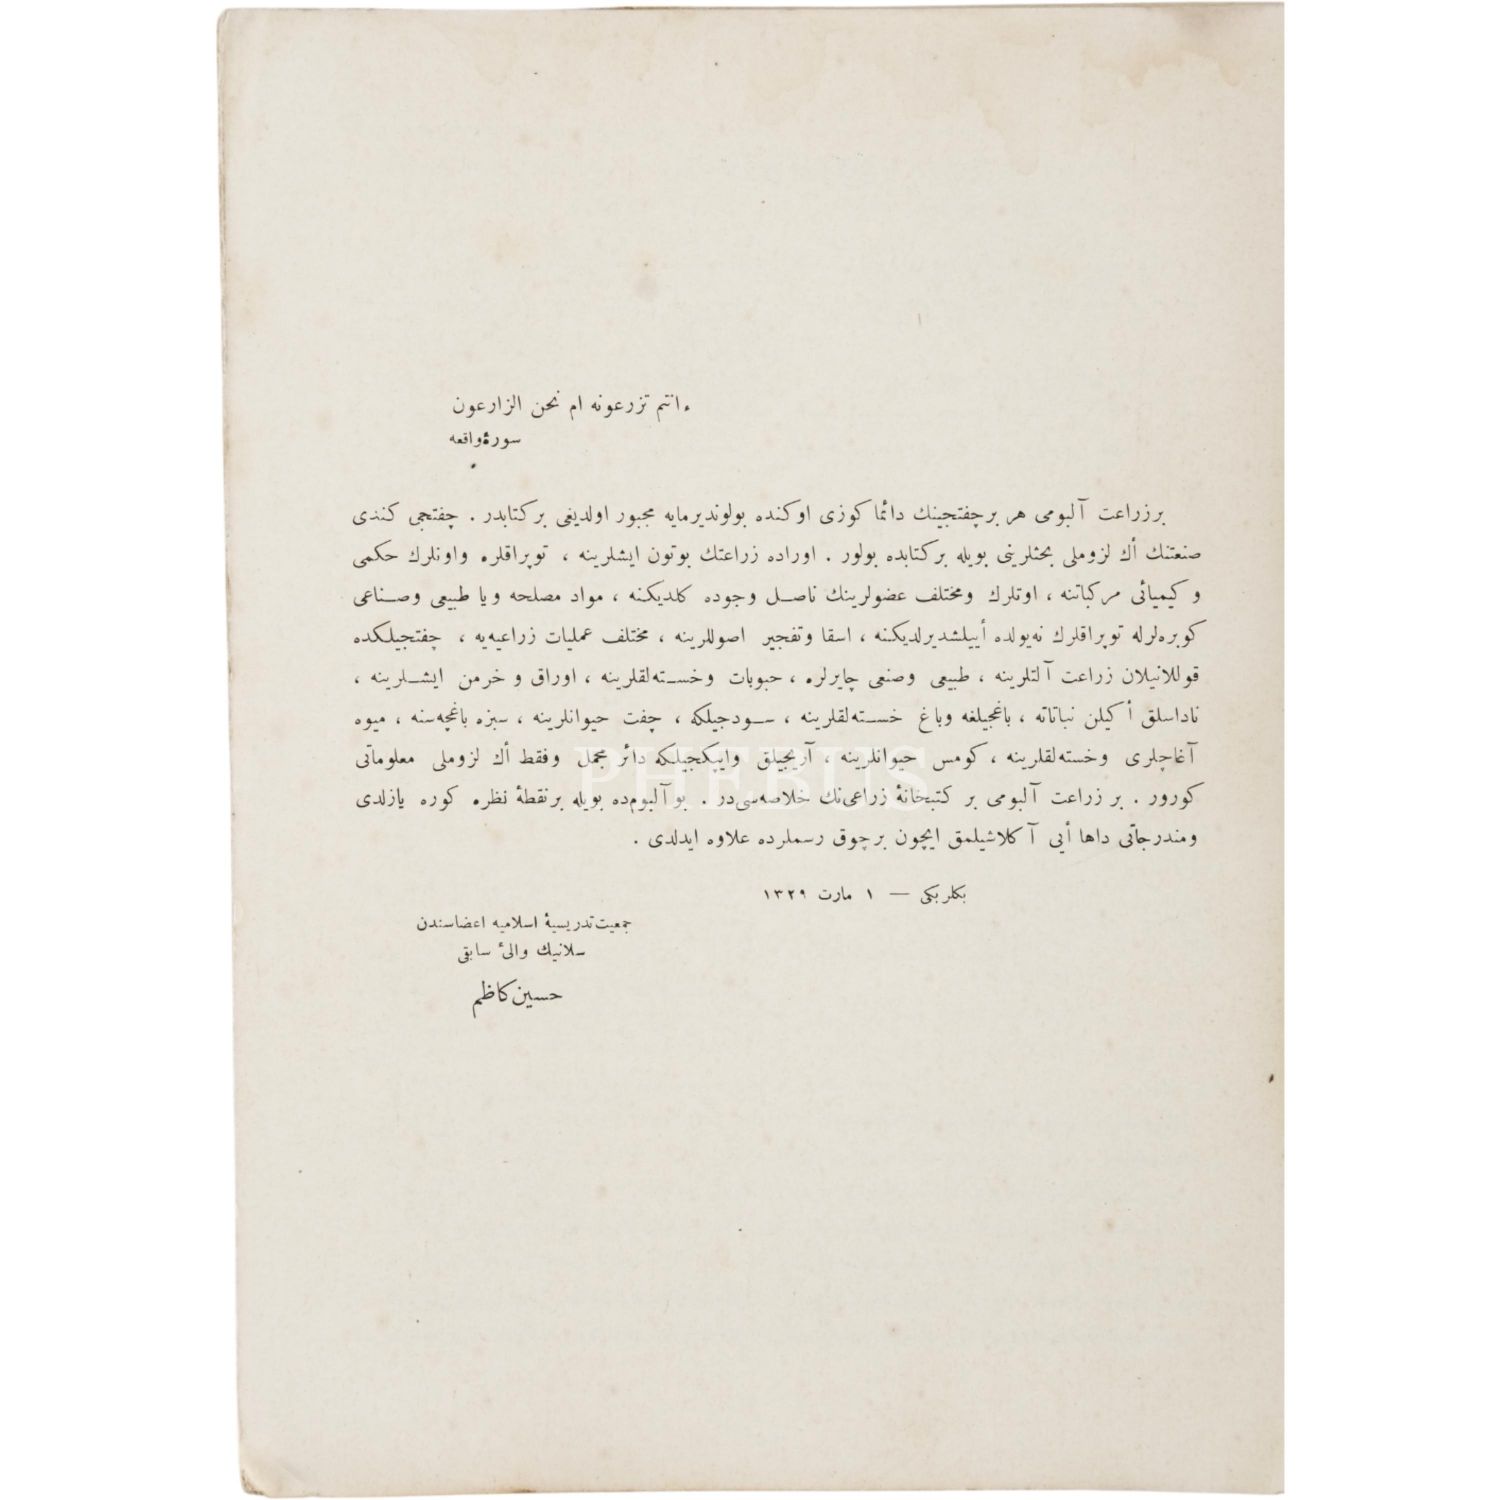 ءانتم تزرعونه ام نحن الزارعون
سورۀ واقعه
بر زراعت آلبومی هر بر چفتجینك دائما كوزی اوكنده بولوندیرمایه مجبور اولدیغی بر كتابدر . چفتجی كندی
صنعتنك أك لزوملی بحثلرینی بویله بر كتابده بولور . اوراده زراعتك بوتون ایشلرینه ، توپراقلره واونلرك حكمی
و كیمیائی مركباتنه ، اوتلرك ومختلف عضولرینك ناصل وجوده كلدیكنه ، مواد مصلحه ویا طبیعی وصناعی
كوبره‌لرله توپراقلرك نه‌یولده أییلشدیرلدیكنه ، اسقا وتفجیر اصوللرینه ، مختلف عملیات زراعیه‌یه ، چفتجیلكده
قوللانیلان زراعت آلتلرینه ، طبیعی وصنعی چایرلره ، حبوبات وخسته‌لقلرینه ، اوراق و خرمن ایشلرینه ،
ناداسلق أكیلن نباتاته ، باغجیلغه وباغ خسته‌لقلرینه ، سودجیلكه ، چفت حیوانلرینه ، سبزه باغچه‌سنه ، میوه
آغاجلری وخسته‌لقلرینه ، كومس حیوانلرینه ، آریجیلق وایپكجیلكه دائر مجمل وفقط أك لزوملی معلوماتی
كورور . بر زراعت آلبومی بر كتبخانۀ زراعی‌نك خلاصه‌سی‌در . بو آلبوم‌ده بویله بر نقطۀ نظره كوره یازلدی
ومندرجاتی داها أیی آكلاشیلمق ایچون بر چوق رسملرده علاوه ایدلدی .
بكلربكی — ١ مارت ١٣٢٩
جمعیت تدریسیۀ اسلامیه اعضاسندن
سلانیك والیٔ سابقی
حسین كاظم
PHEBUS